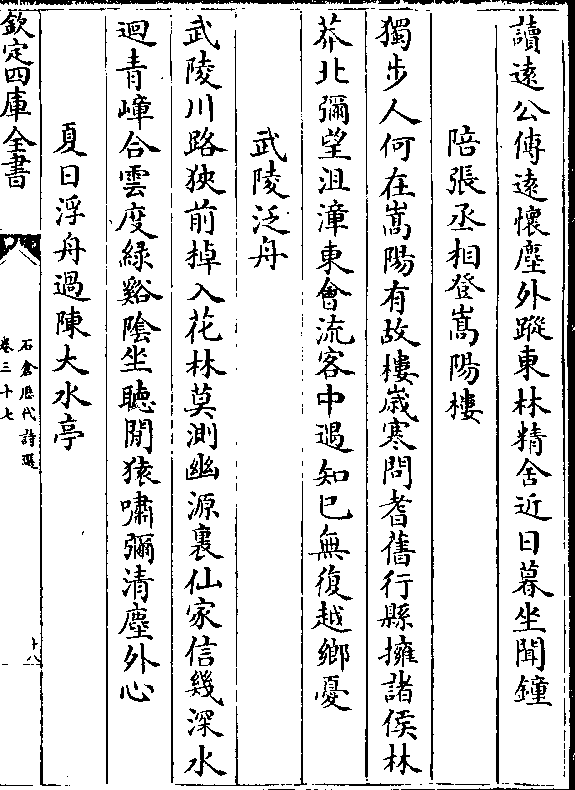 讀遠公傳遠懷塵外蹤東林精舍近日暮坐聞鐘
陪張丞相登嵩陽樓
獨步人何在嵩陽有故樓歲寒問耆舊行縣擁諸侯林
莽北彌望沮漳東會流客中遇知己無復越鄉憂
武陵泛舟
武陵川路狹前掉入花林莫測幽源裏仙家信幾深水
迴青嶂合雲度綠谿陰坐聽閒猿嘯彌清塵外心
夏日浮舟過陳大水亭
欽定四庫全書
石倉歷代詩選
卷三十七
十八